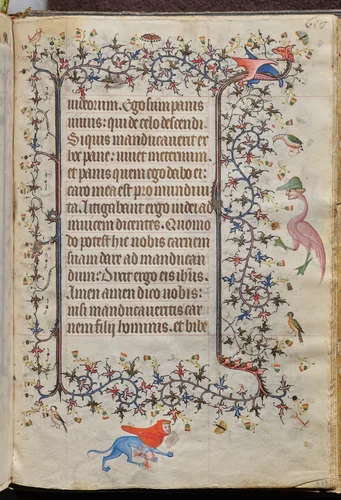 iudeorum. Ego sum panis
uiuus: qui de celo descendi.
Siquis manducauerit ex
hoc pane: uiuet in eternum.
et panis quem ego dabo ca
caro mea est pro mundi ui
ta. Litigabant ergo iudei ad
inuicem dicentes. Quomo
do potest hic nobis carnem
suam dare ad manducan
dum: Dixit ergo eis ihus.
Amen amen dico nobis:
nisi manducaueritis car
nem filij hominis. et bibe